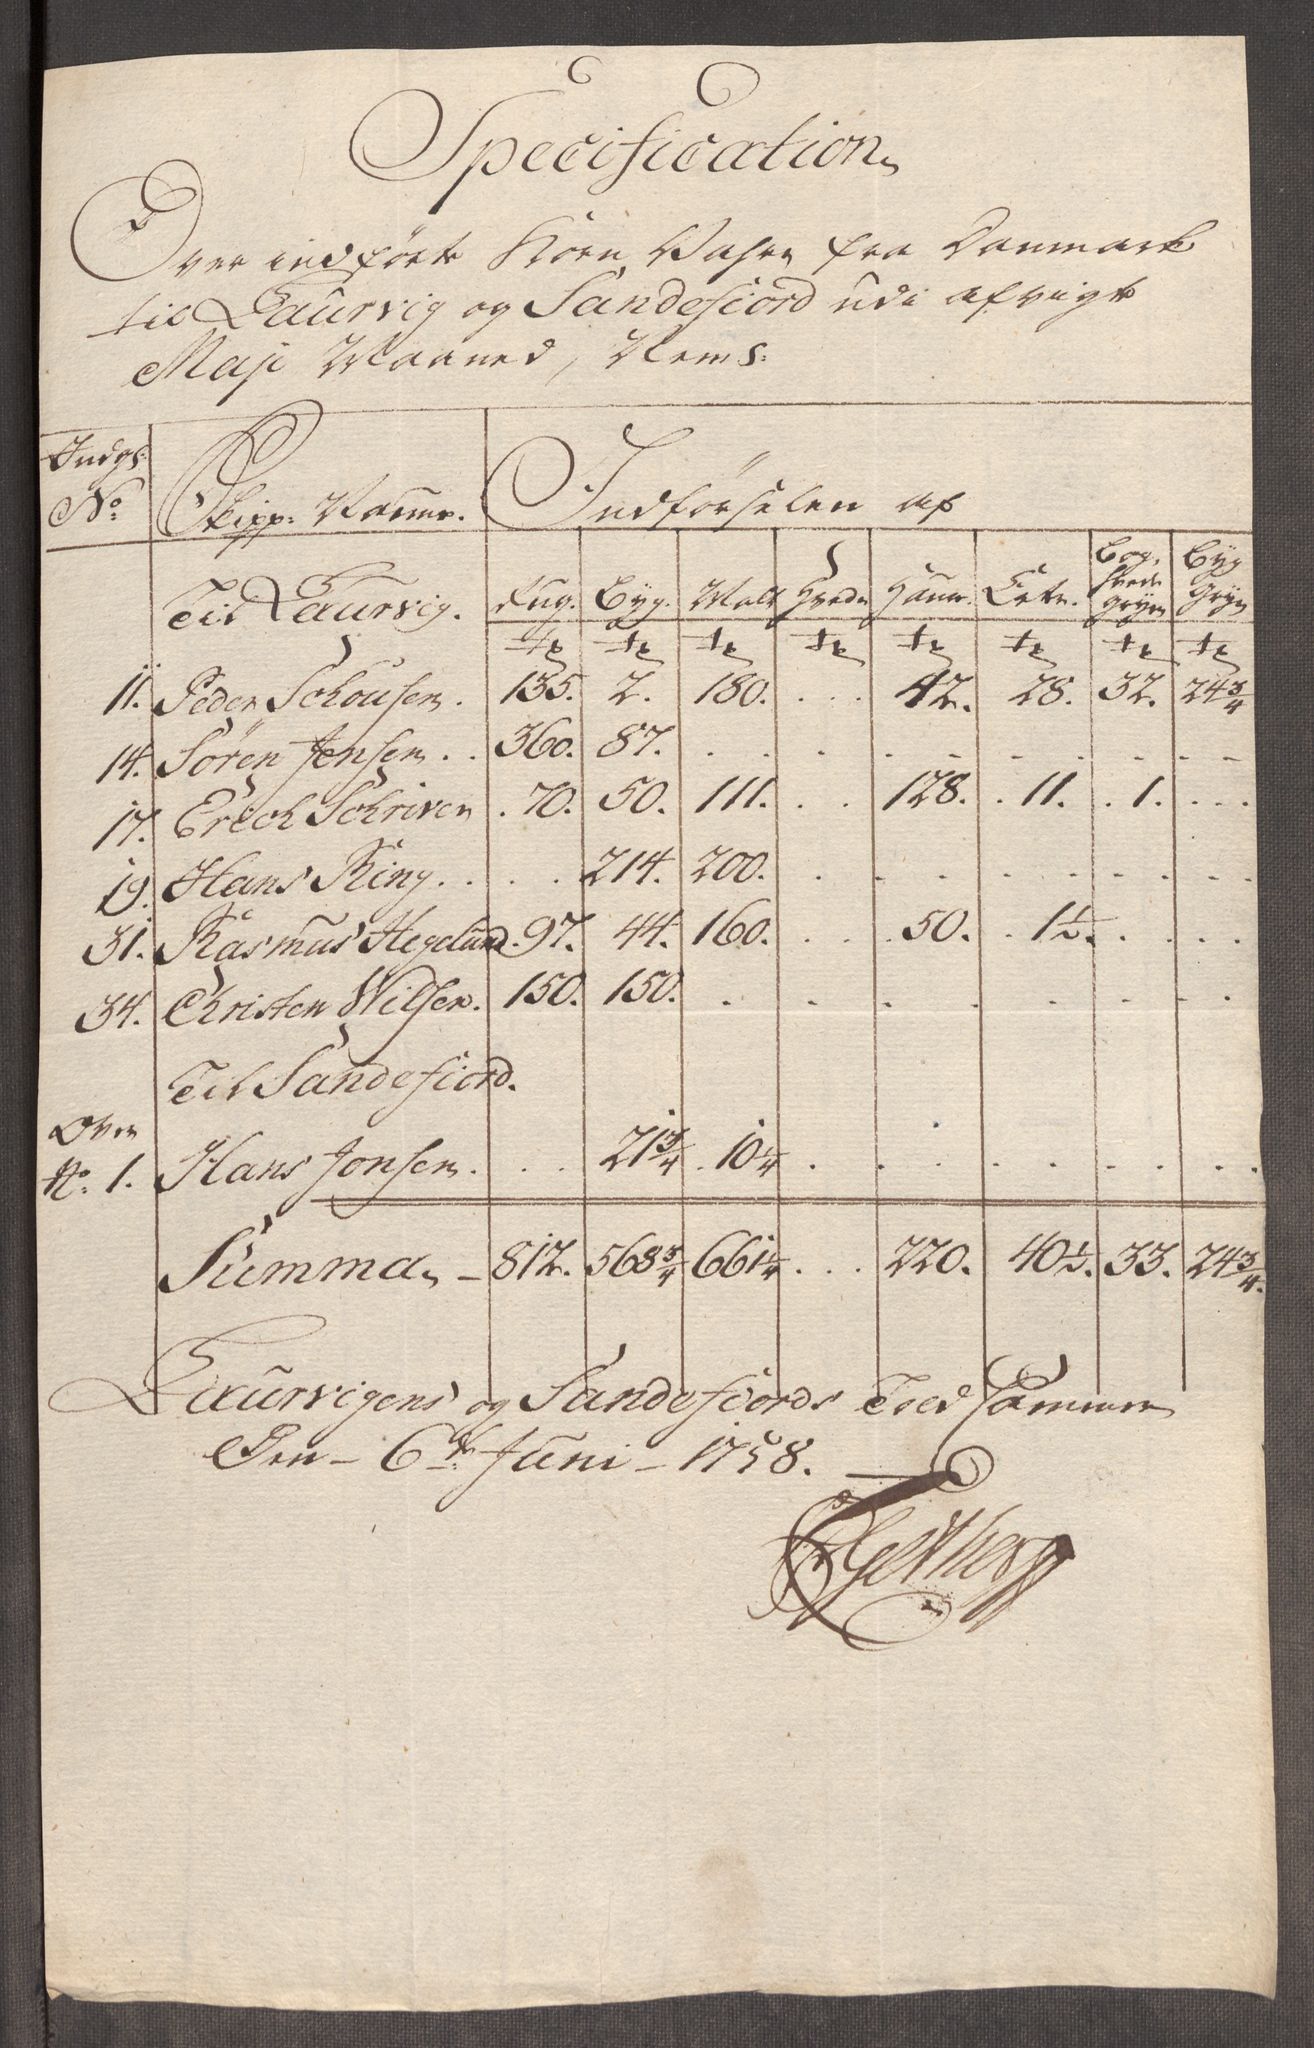 Specification
Over indførte Korn Vahre fra Danmark
til Laurvig og Sandefiord udi afvigte
Maji Maaned, Nemb:
Indgs: No: Skipp: Naune. Indførselen af
Til Laurvig. Rug. Byg. Malt Hvede Haure. Erter. Bog hvede gryen Byg Gryn
Tr Tr Tr Tr Tr Tr Tr Tr
11. Peder Schousen. 135. 2. 180. . . . 42. 28. 32. 24 3/4
14. Sören Jensen . . 360. 87. . . . . . . . . .
17. Erech Schriver . 70. 50. 111. . . 128. . 11. . 1. . . .
19. Hans Ring . . . . 214. 200. . . . . . . . .
31. Rasmus Hegelund . 97. 44. 160. . . . 50. . 1 1/2. . . . .
34. Christen Nilsen. 150. 150. . . . . . . . .
Til Sandefiord.
No: 1. Hans Jonsen . . . 21 3/4 . 10 1/4 . . . . . . . .
Summa - 812. 568 3/4 661 1/4 . . . 220. 40 1/2. 33. 24 3/4.
Laurvigens og Sandefiords Told Cammer
Den - 6te Juni - 1758.